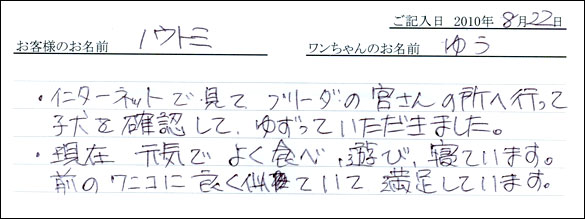 ご記入日 2010年 8月22日
お客様のお名前 ノウトミ ワンちゃんのお名前 ゆう
・インターネットで見て、ブリーダの宮さんの所へ行って
子犬を確認して、ゆずっていただきました。
・現在 元気で よく食べ、遊び、寝ています。
前のワンコに良く似ていて 満足しています。